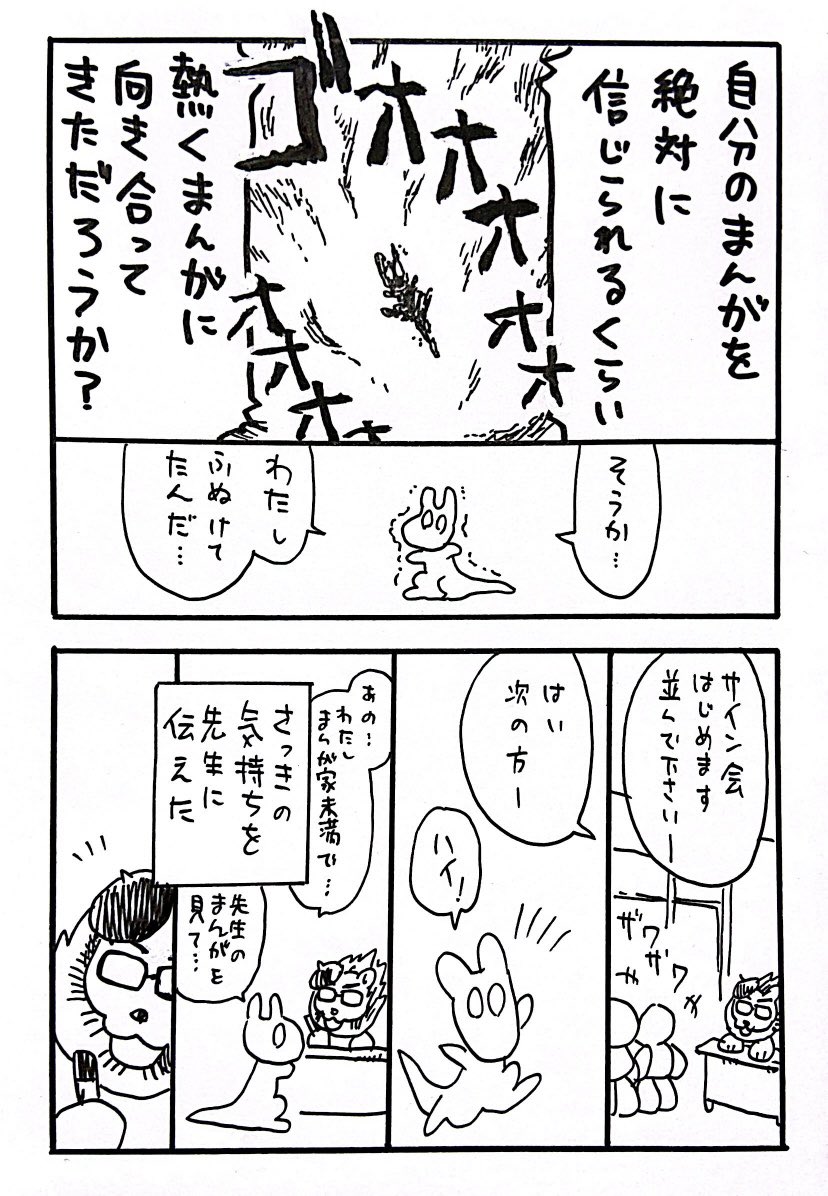 自分のまんがを
絶対に
信じられるくらい
ゴオオオオオオオオオ
熱くまんがに
向き合って
きただろうか?
そうか…
わたし
ふぬけて
たんだ…
サイン会
はじめます
並んで下さいー
ザワ
ザワ
はい
次の方ー
ハイ!
あの…
わたし
まんが家未満で…
先生の
まんがを
見て…
さっきの
気持ちを
先生に
伝えた